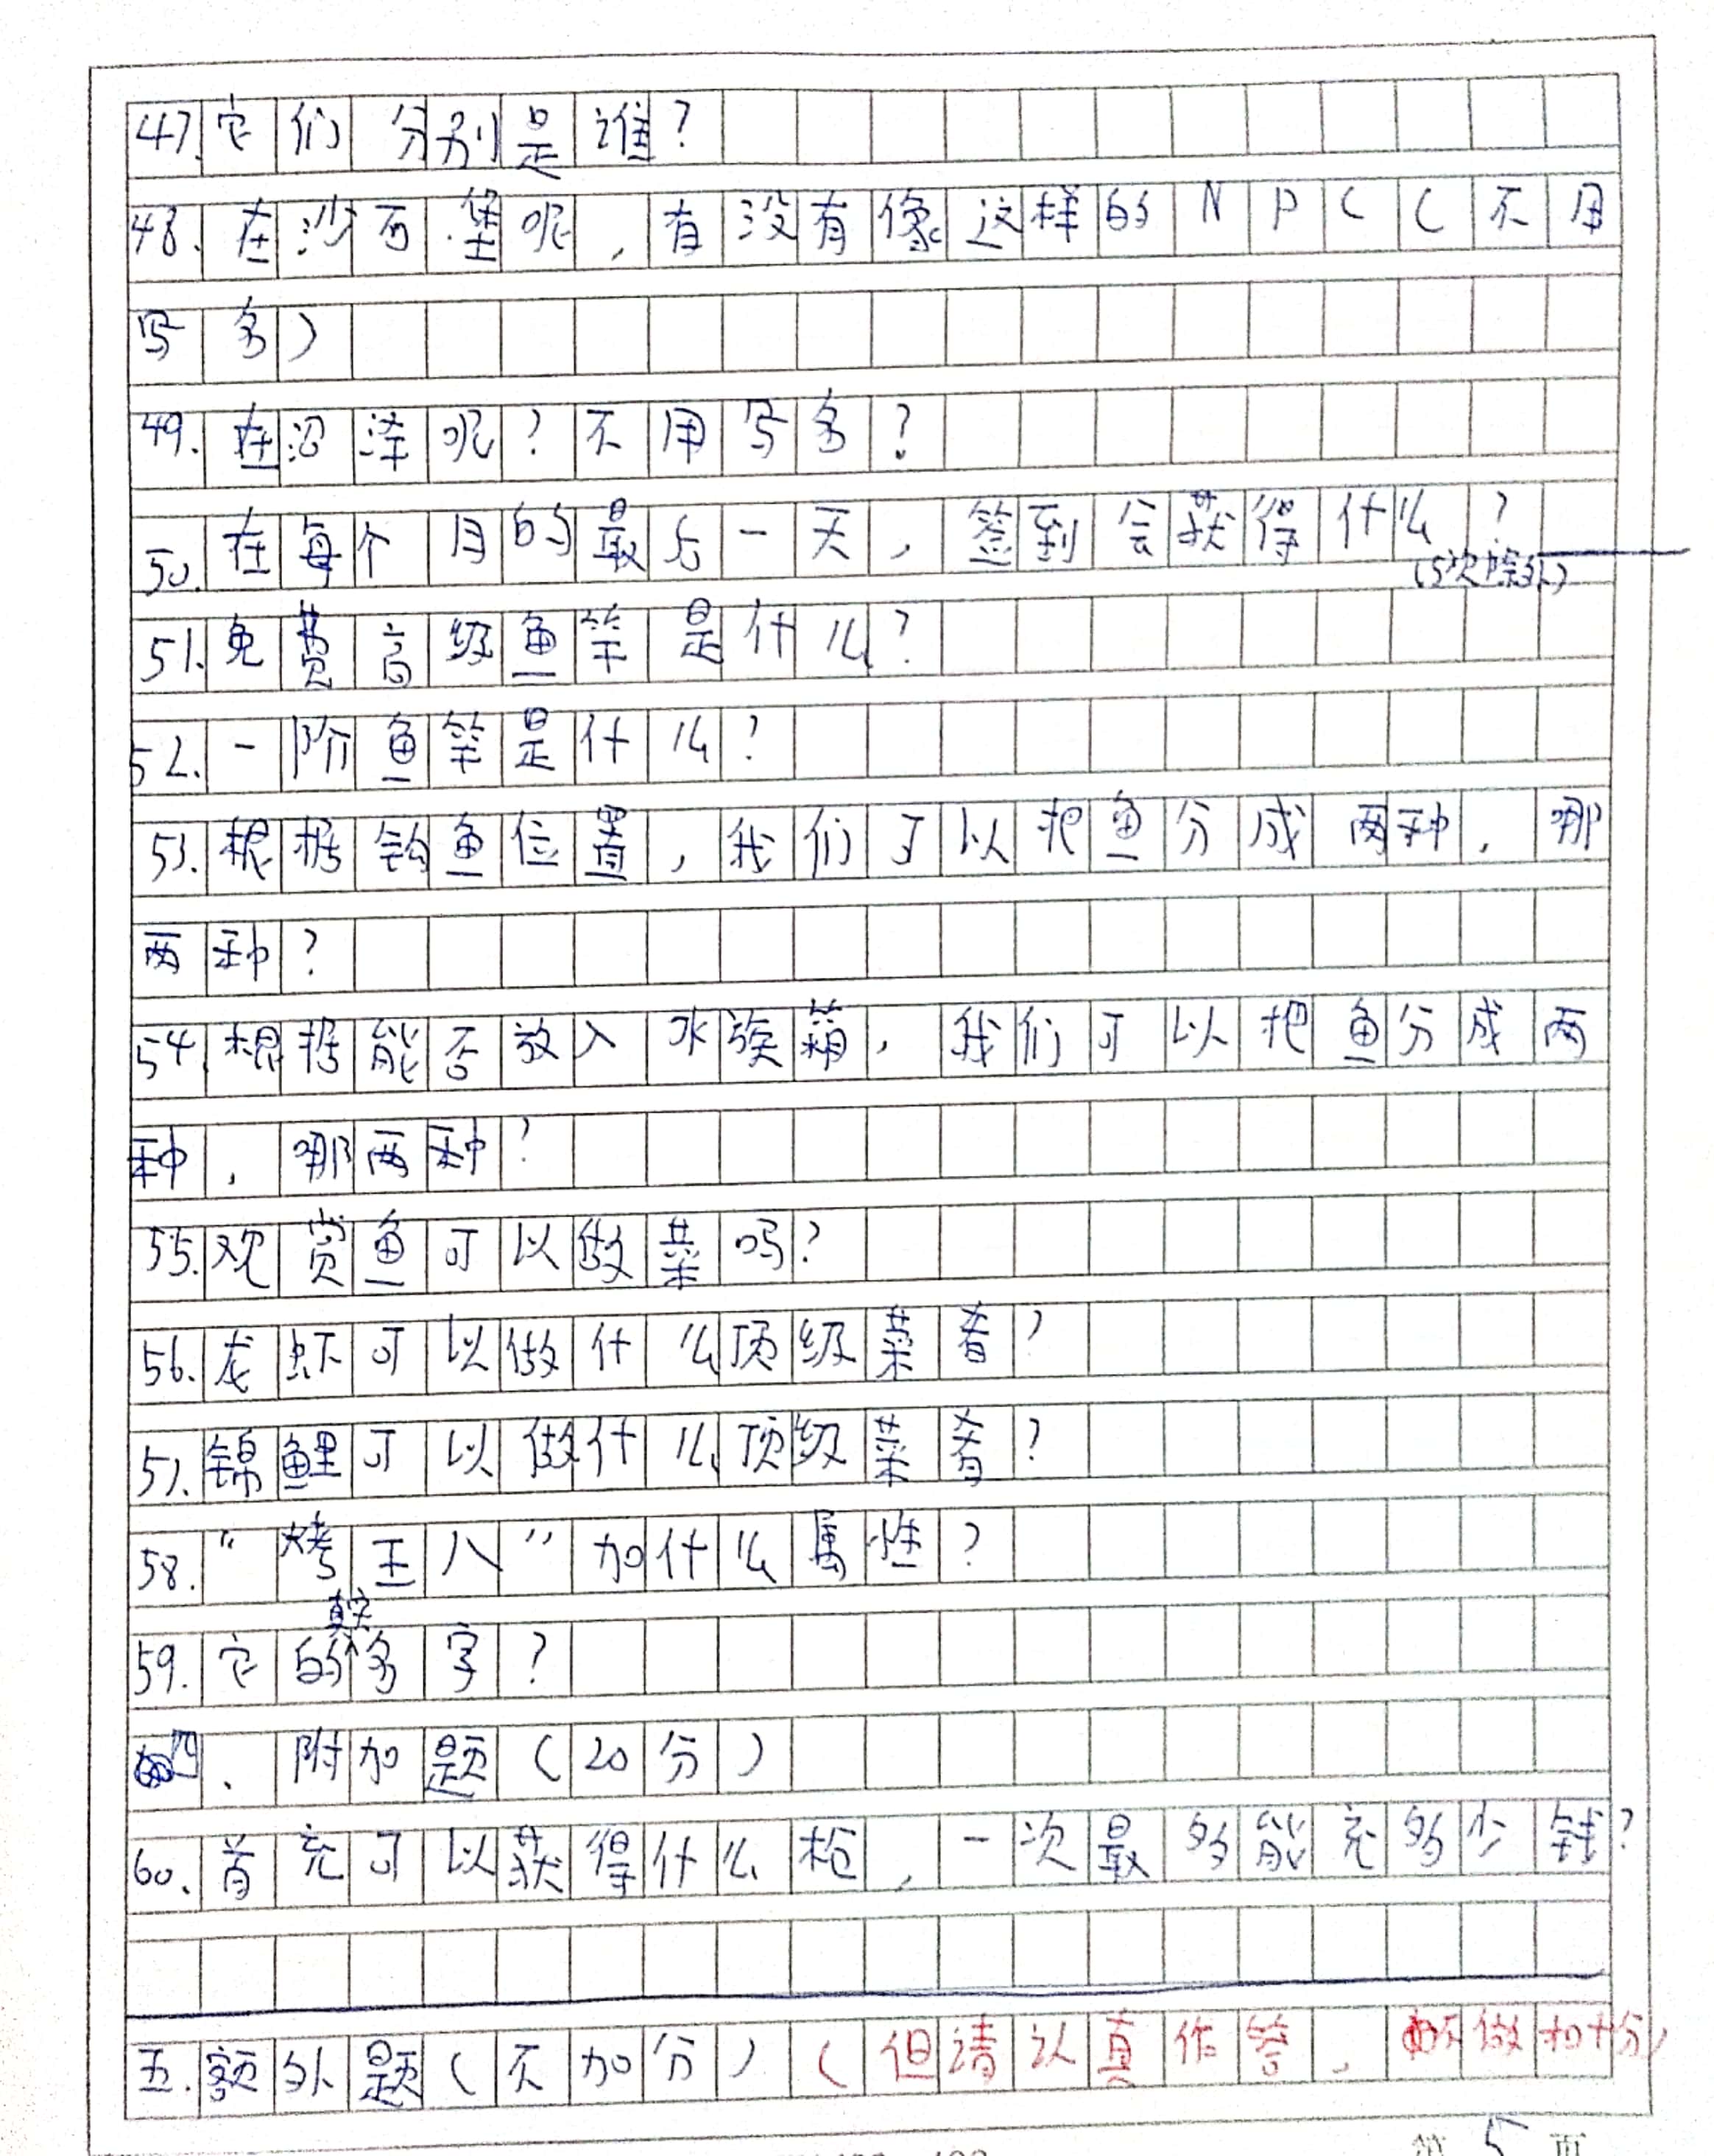 47.它们分别是谁?
48.在沙石堡呢,有没有像这样的NPC(不用
写名)
49.在沼泽呢?不用写名?
50.在每个月的最后一天,签到会获得什么?
(5次除外)
51.免费高级鱼竿是什么?
52.一阶鱼竿是什么?
53.根据钩鱼位置,我们可以把鱼分成两种,哪
两种?
54.根据能否放入水族箱,我们可以把鱼分成两
种,哪两种?
55.观赏鱼可以做菜吗?
56.龙虾可以做什么顶级菜肴?
57.锦鲤可以做什么顶级菜肴?
58.“烤王八”加什么属性?
真实
59.它的名字?
四、附加题(20分)
60.首充可以获得什么枪,一次最多能充多少钱?
五.额外题(不加分)(但请认真作答,不做扣十分)
第5页